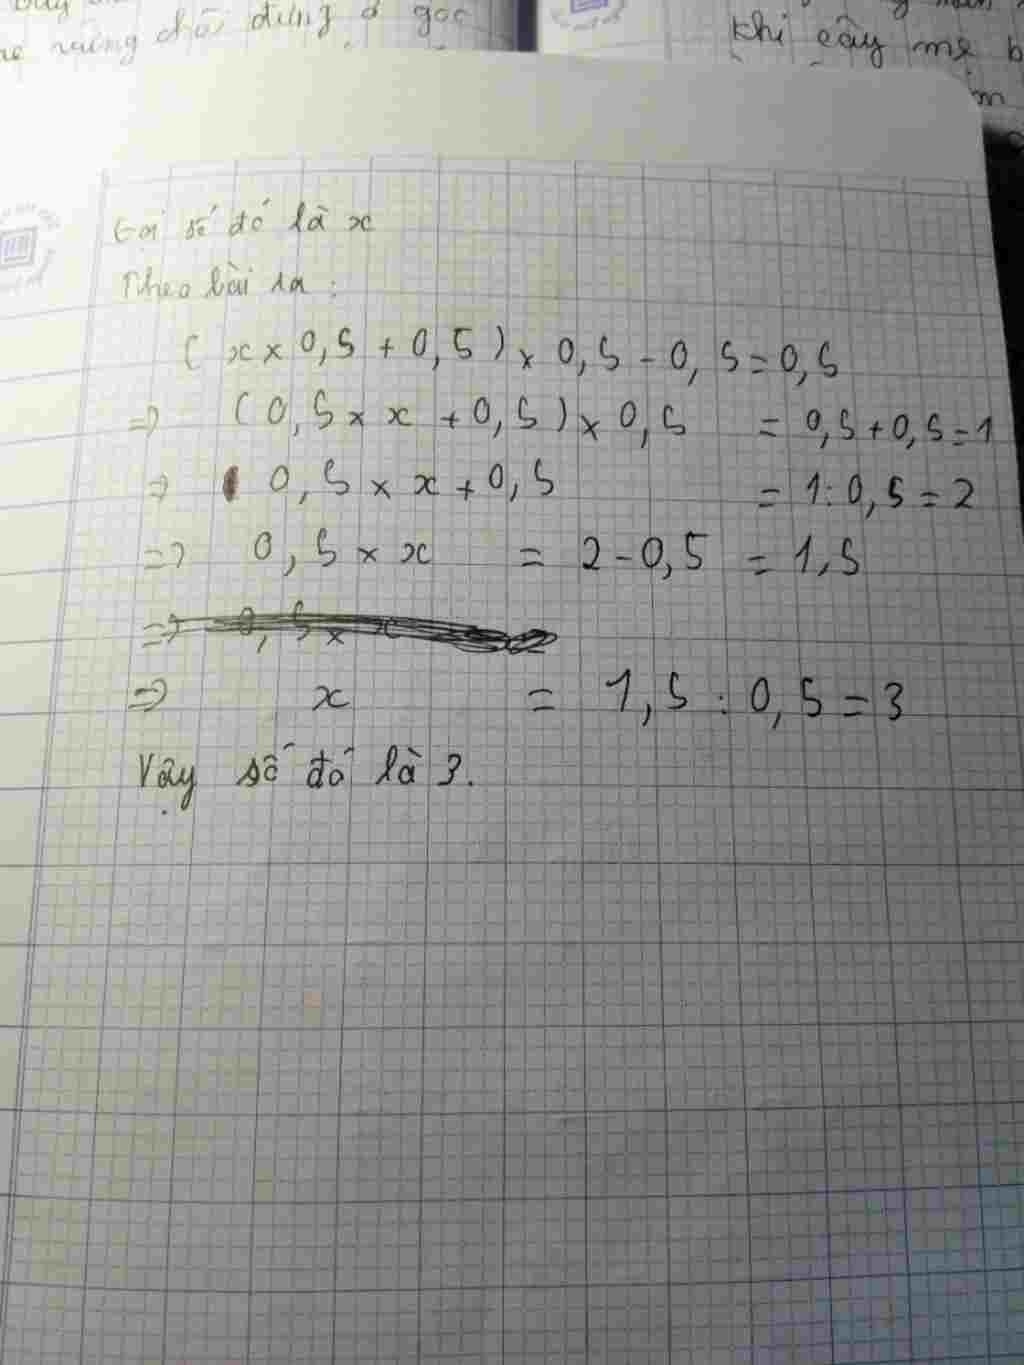 chổi đứng ở góc
khi cây mẹ b
Gọi số đó là x
Theo bài ra :
( x × 0,5 + 0,5 ) × 0,5 - 0,5 = 0,5
=> ( 0,5 × x + 0,5 ) × 0,5 = 0,5 + 0,5 = 1
=> 0,5 × x + 0,5 = 1 : 0,5 = 2
=> 0,5 × x = 2 - 0,5 = 1,5
=> 0,5 × x =
=> x = 1,5 : 0,5 = 3
Vậy số đó là 3.